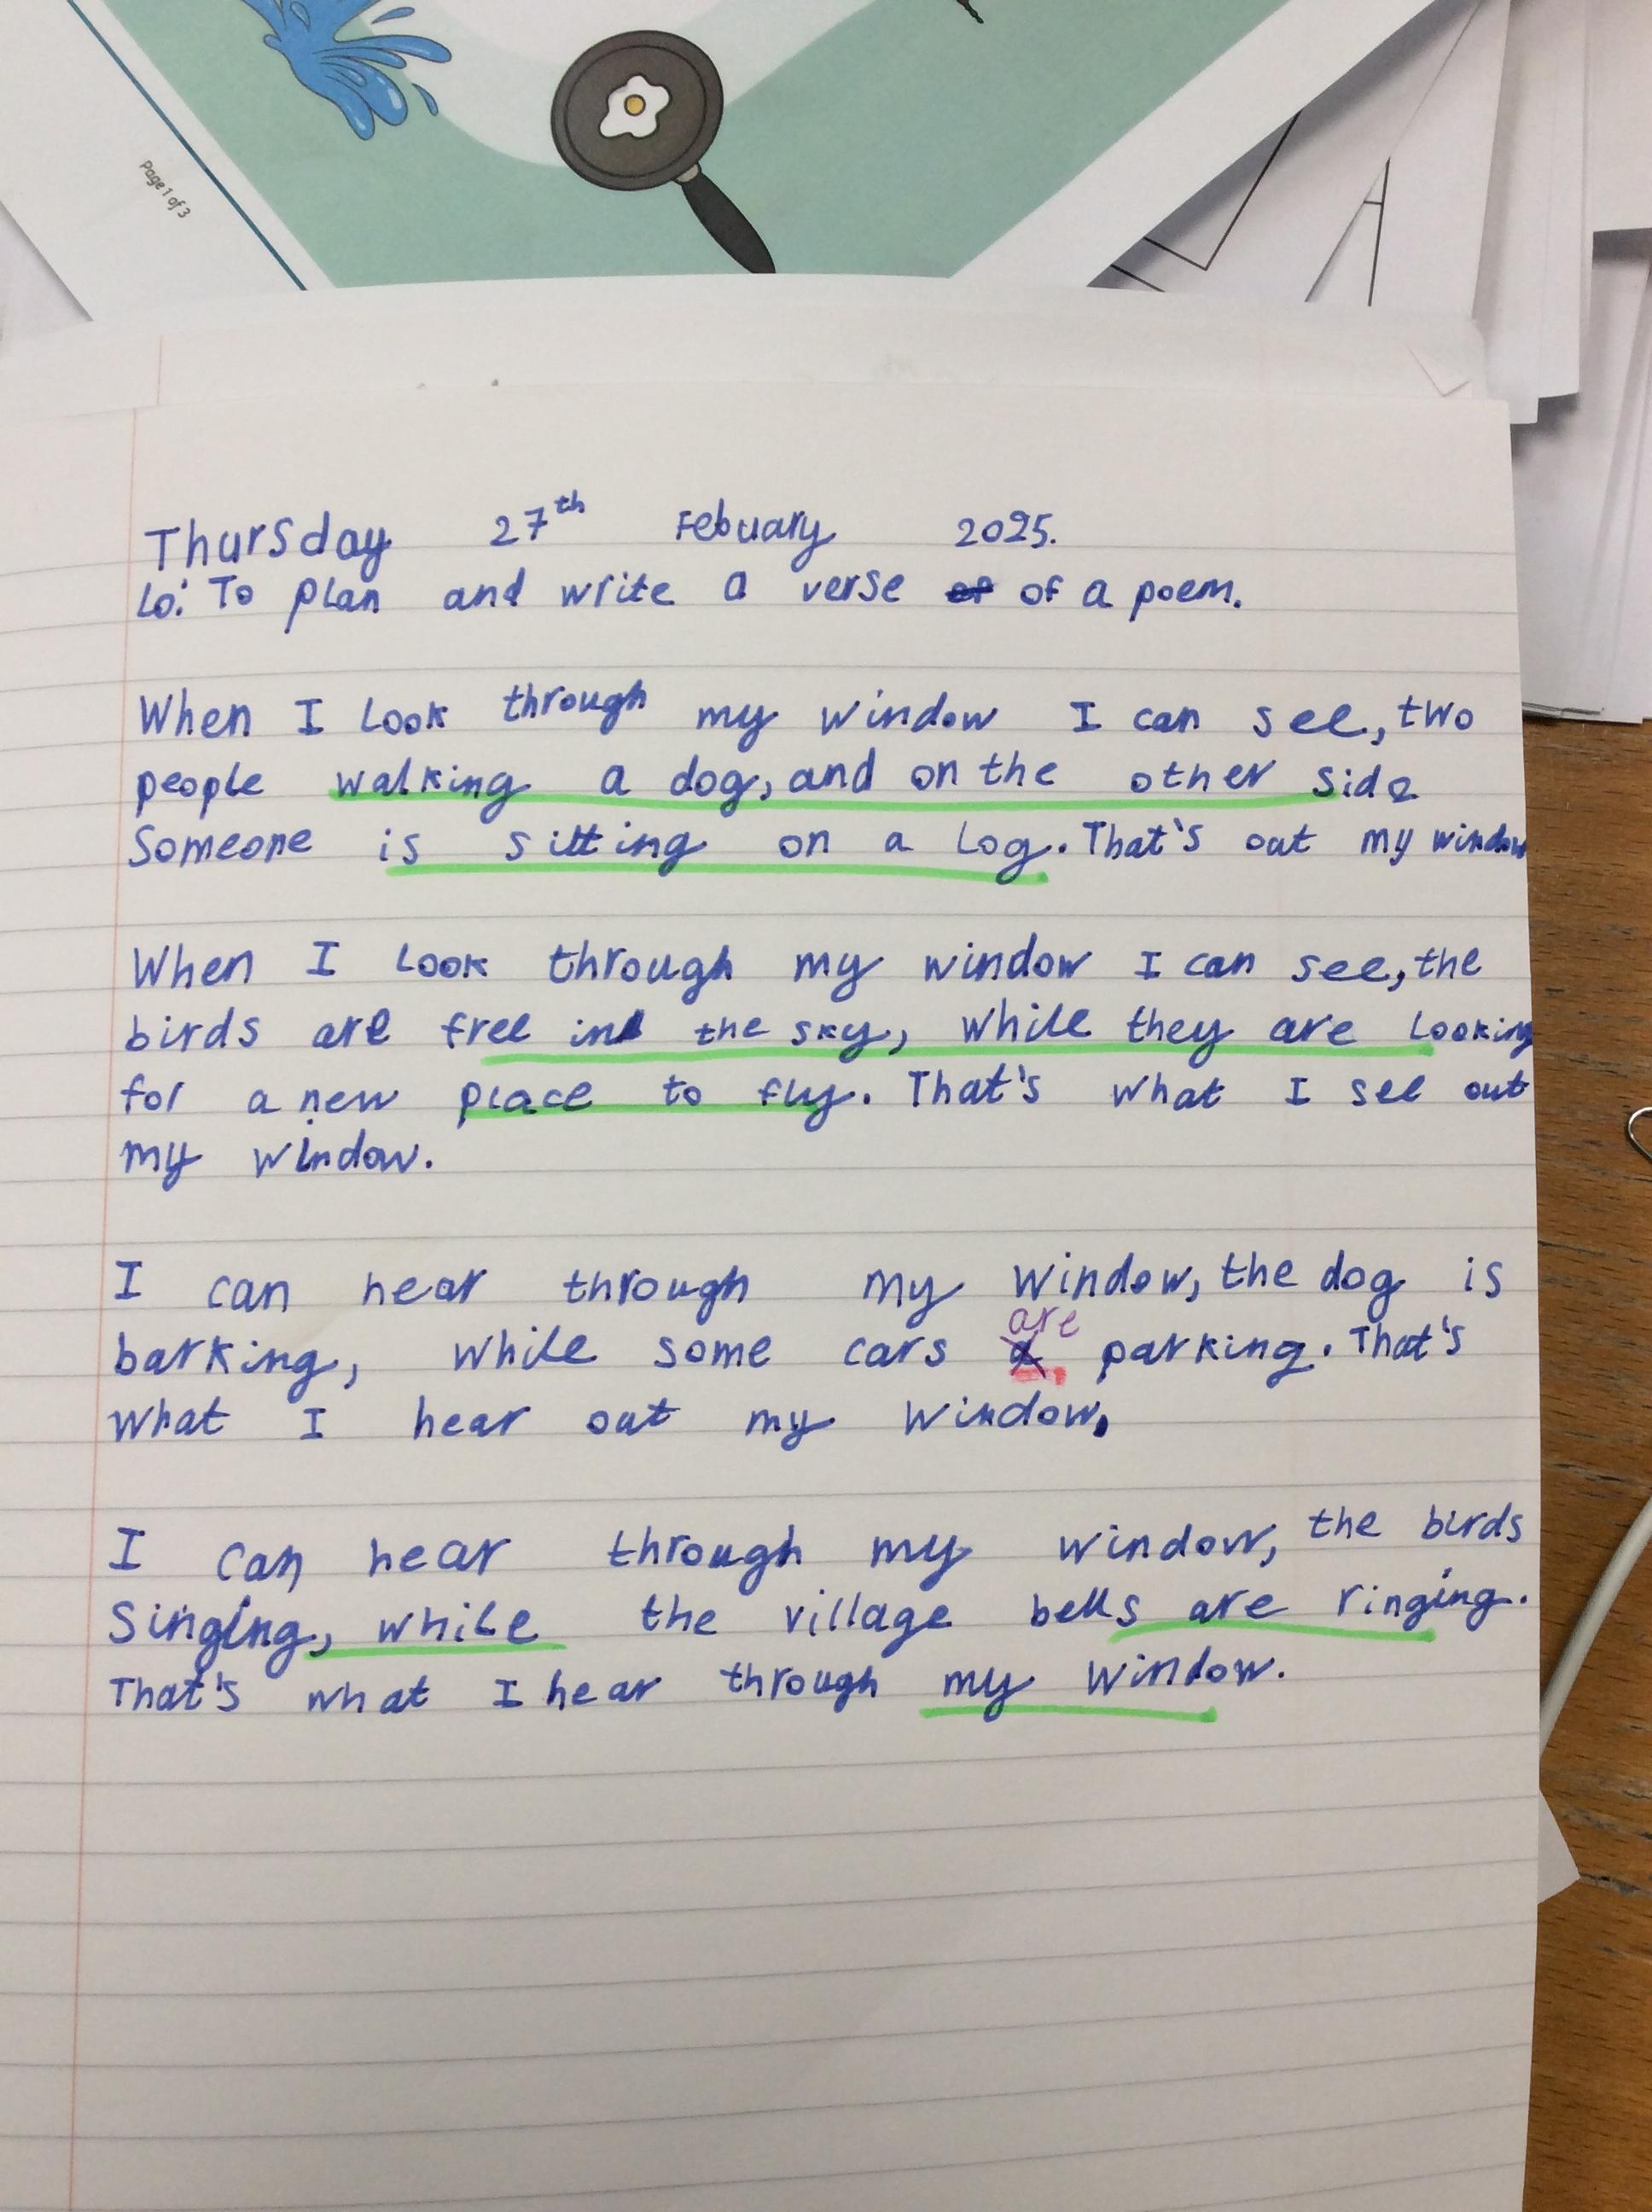 Page 1 of 3
Thursday 27th Febuary 2025.
Lo: To plan and write a verse of of a poem.
When I look through my window I can see, two
people walking a dog, and on the other side
Someone is sitting on a log. That's out my window
When I look through my window I can see, the
birds are free in the sky, while they are looking
for a new place to fly. That's what I see out
my window.
I can hear through my window, the dog is
are
barking, while some cars a parking. That's
what I hear out my window.
I can hear through my window, the birds
Singing, while the village bells are ringing.
That's what I hear through my window.